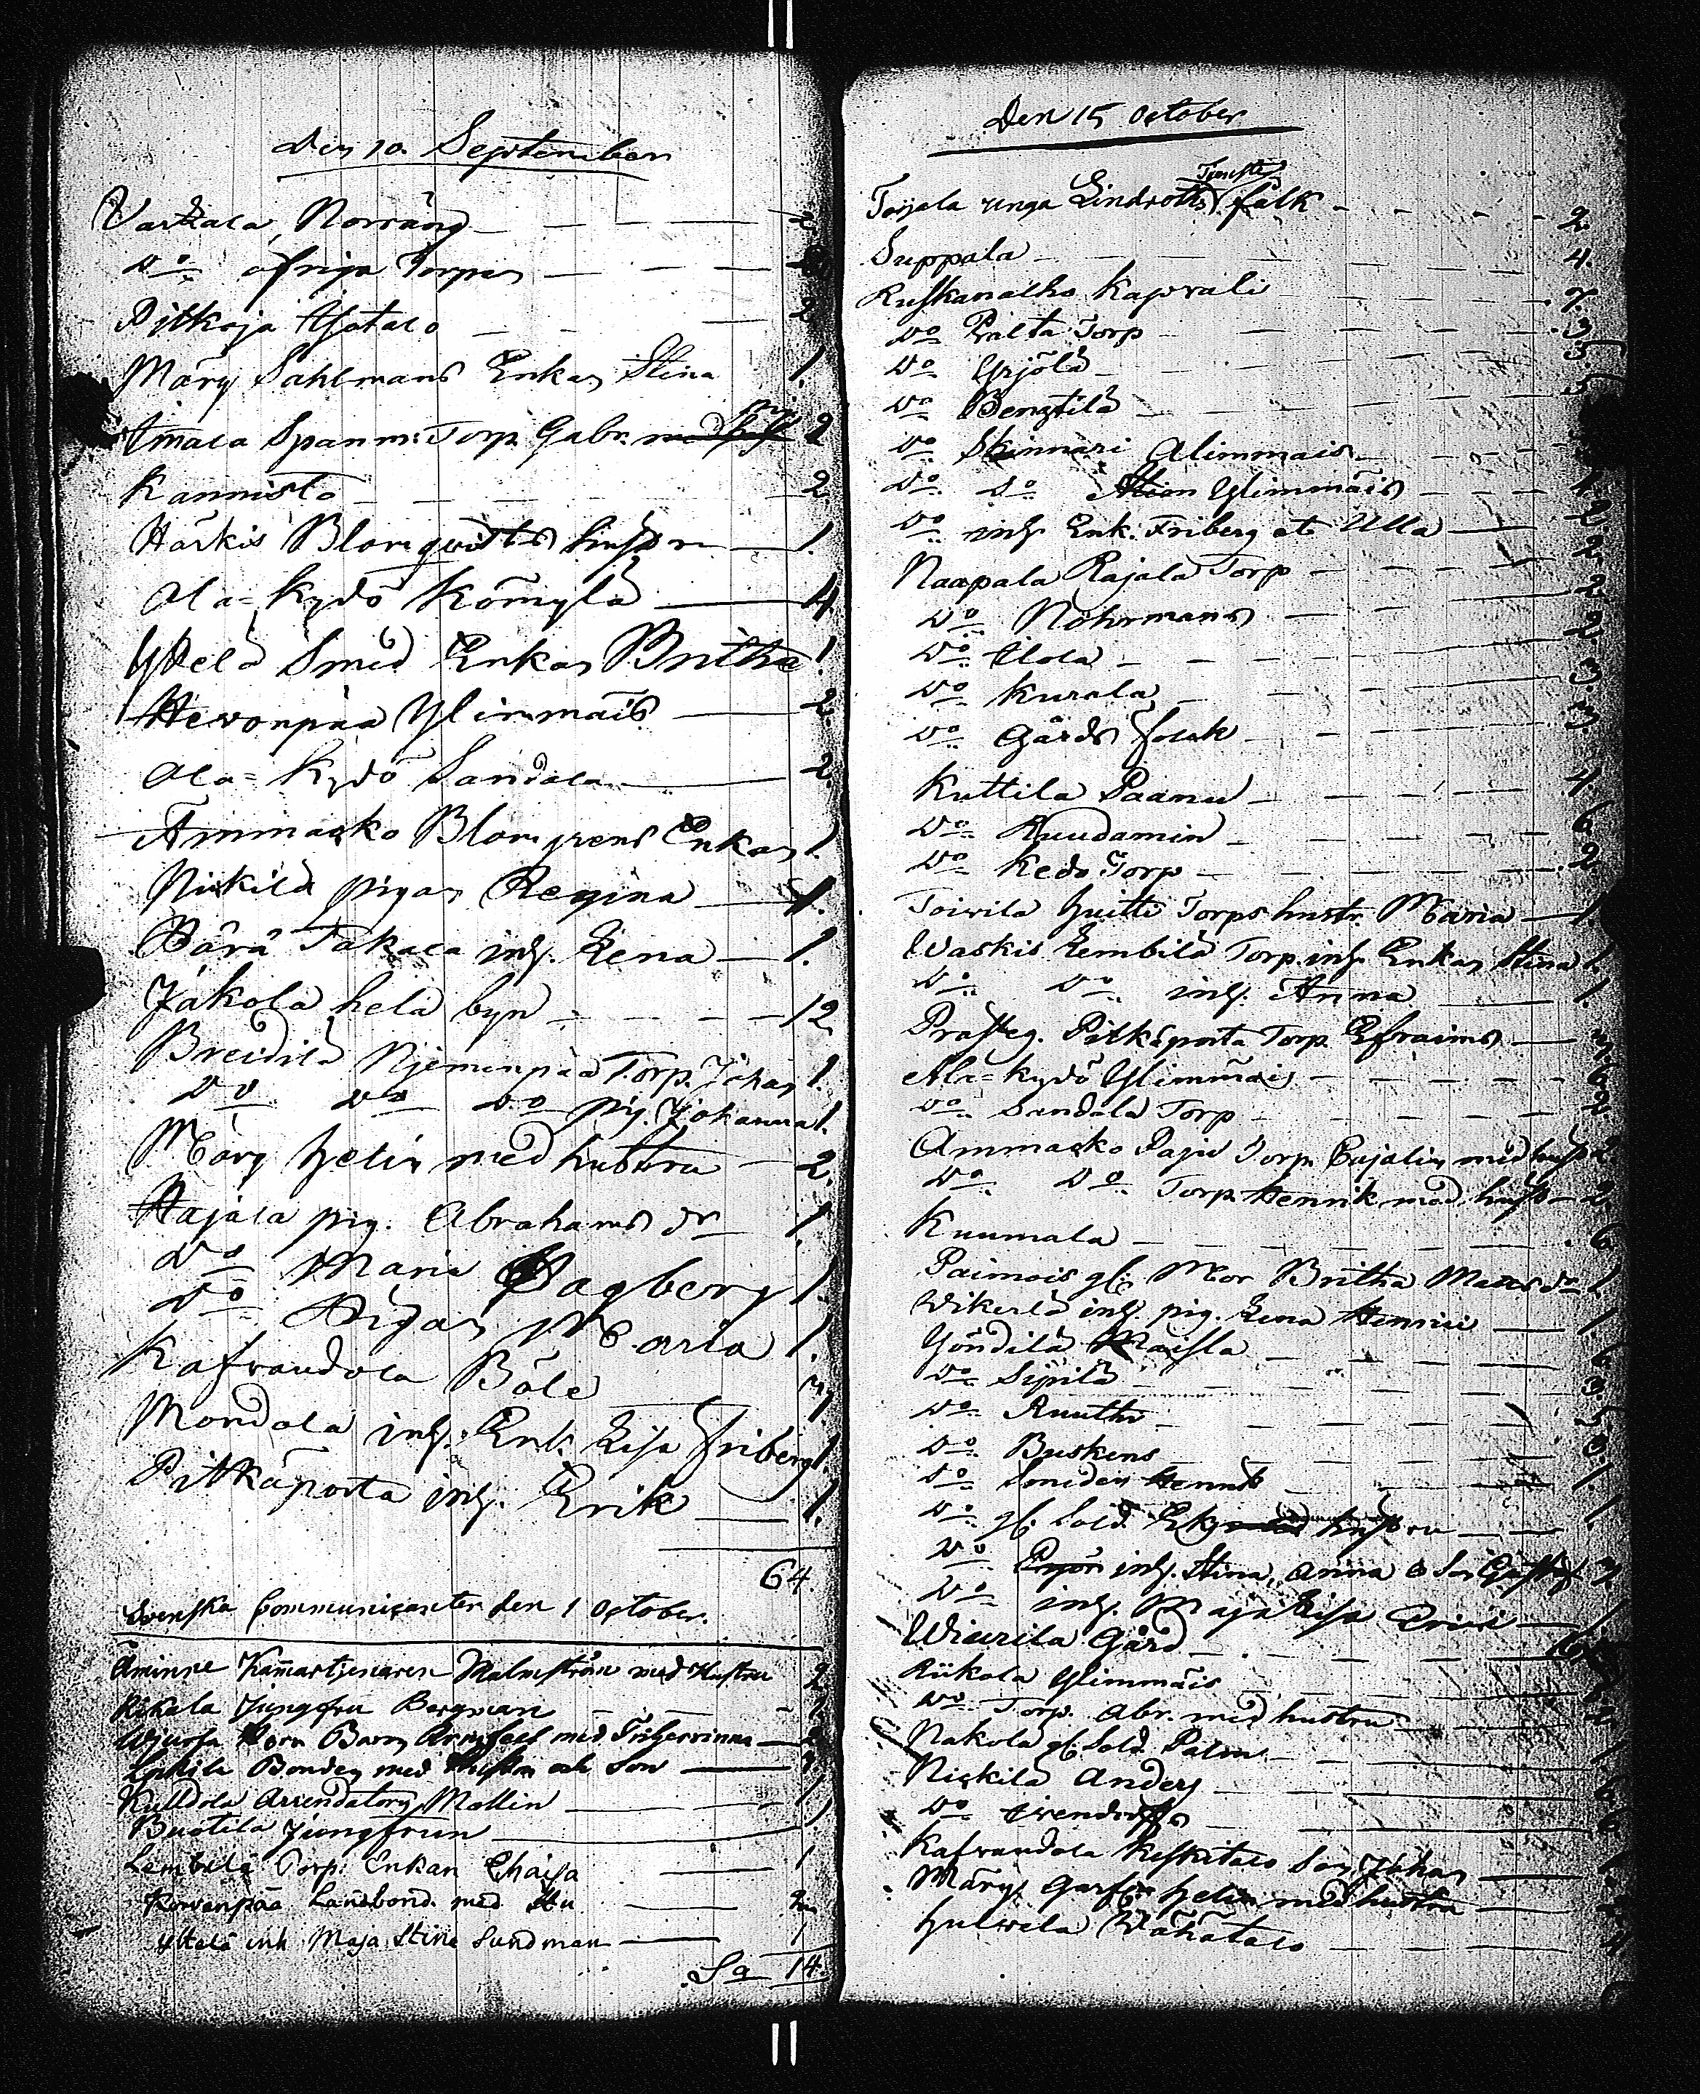 Den 10. September
Vartsala, Norräng — — — 2
do öfriga Torpen — — —
Pitkoja Ylötalo — — 2
Märy Sahlmans Enkan Stina 1.
Immala Spanm: Torp. Gabr. med hust 2
Kannisto — — — 2
Härkis Blomqvists hustru — 1.
Ala-Kydö Kömylä — 4
Ytelä Smed Enkan Britha 1
Hevonpää Ylimmäis — 2.
Ala-Kydö Sandala — 2.
Ammasko Blomgrens Enkan 1.
Nickilä pigan Regina — 1.
Pärä Takala inh. Lena — 1.
Jäkola hela byn — — — 12
Breidilä Njemenpää Torp. Johan 1.
do do do pig. Johanna 1.
Märy Helin med hustru — 2.
Hajala pig. Abrahams dr — 1.
do Maria Dagberg 1.
do Pigan Maria 1.
Kafvandola Böle
Mondola inh. Enk. Lisa Friberg 1.
Pitkäporta inh. Erik — 1.
64.
Svenska Communicanter den 1 October.
Åminne Kammartjenaren Malmström med Hustru 2
Rikala Jungfru Bergman — — 1
Wjurla Herr Baron Armfelt med Friherrinna — 2
Bonden med Hustru och Son — 3
Kulldola Arrendatorn Mollin — 1
Buotila Jungfrun — 1
Lembelä Torp: Enkan Chaisa — 1
Kowenpää Landbond. med Hu — 2
Ytelä inh Maja Stina Sundman — 1
Sa 14.
Den 15 October
Torjala unga Lindroths Tjenste folk — — 2
Suppala — — — 4.
Ruskanalho Kaprali — — 7.
do Pralta Torp — — 3
do Yrjölä — — 5
do Bengtilä — — 5
do Skinnari Alimmais — —
do do Ylimmäis — — 4
do inh. Enk: Friberg et Ulla — 2
Naapala Rajala Torp — — 2.
do Nohrmans — — 2
do Ulola — — 2
do Kurala — — 3.
do Gårds folck — — 3.
Kuttila Paanu — — 4
do Ruudamin — — 6
do Kedo Torp — — 2.
Toivila Huitti Torps hustr. Maria — 1
Waskis Lembilä Torp. inh. Enkan Stina 1.
do do inh. Anna — 1.
Prästeg. Pitkäporta Torp. Efraims —
Ala-kydö Ylimmäis — — 6
do Sandala Torp — — 2
Ammasko Paju Torp. Pajalin med hust 2
do do Torp. Henrik med hust — 2.
Kuumala — — — 6
Paimais gl. Mor Britha Matts dr 1
Vikerlä inh. pig. Lena Henrici — 1.
Yöndilä Maisla — — 6
do Sipilä — — 3.
do Ruuthi — — 5
do Buskens — — 3.
do Smeden Henrik — — 1.
do gl. Sold. hustru — 1.
do inh. Stina, Anna o Son 3
do inh. Maja Lisa — 1
Wiurila Gård — —
Riikola Ylimmäis — —
do Torp. Abr. med hustru — 2.
Nakola gl. Sold. Palm — — 1
Nickilä Anders — — 6
do — — 6
Kafvandola Keskitalo Son Johan — 1
Märy Helin med hustru — 2
Hulvela Wähätalo — — 4